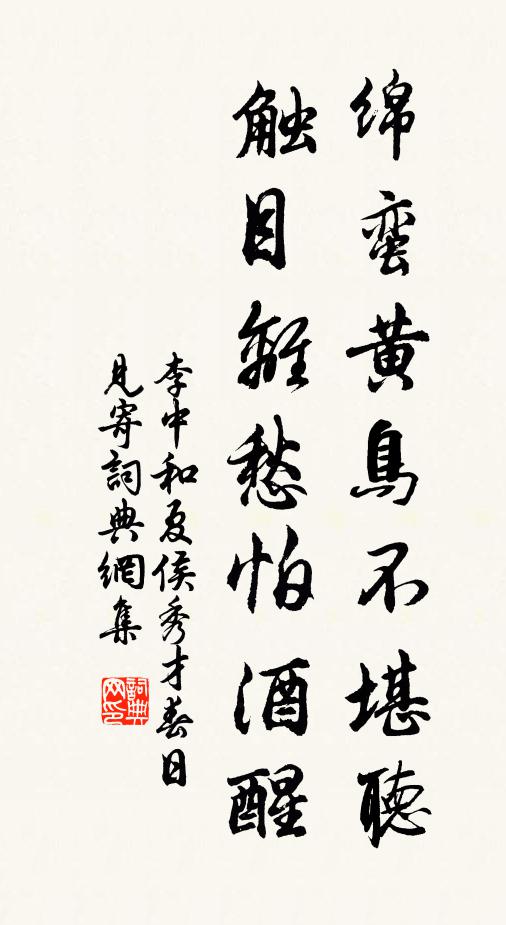 绵蛮黄鳥不堪聽
触目離愁怕酒醒
李中和夏侯秀才春日
見寄詞典網集
詞典网印